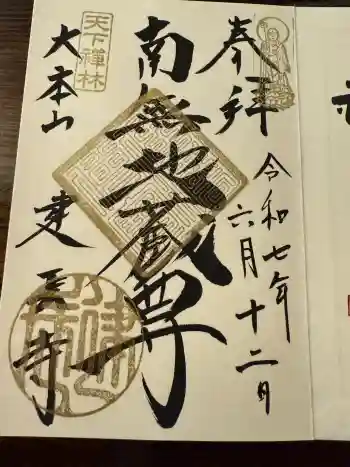 奉拝
令和七年
六月十二日
南無地蔵尊
天下禅林
大本山 建長寺